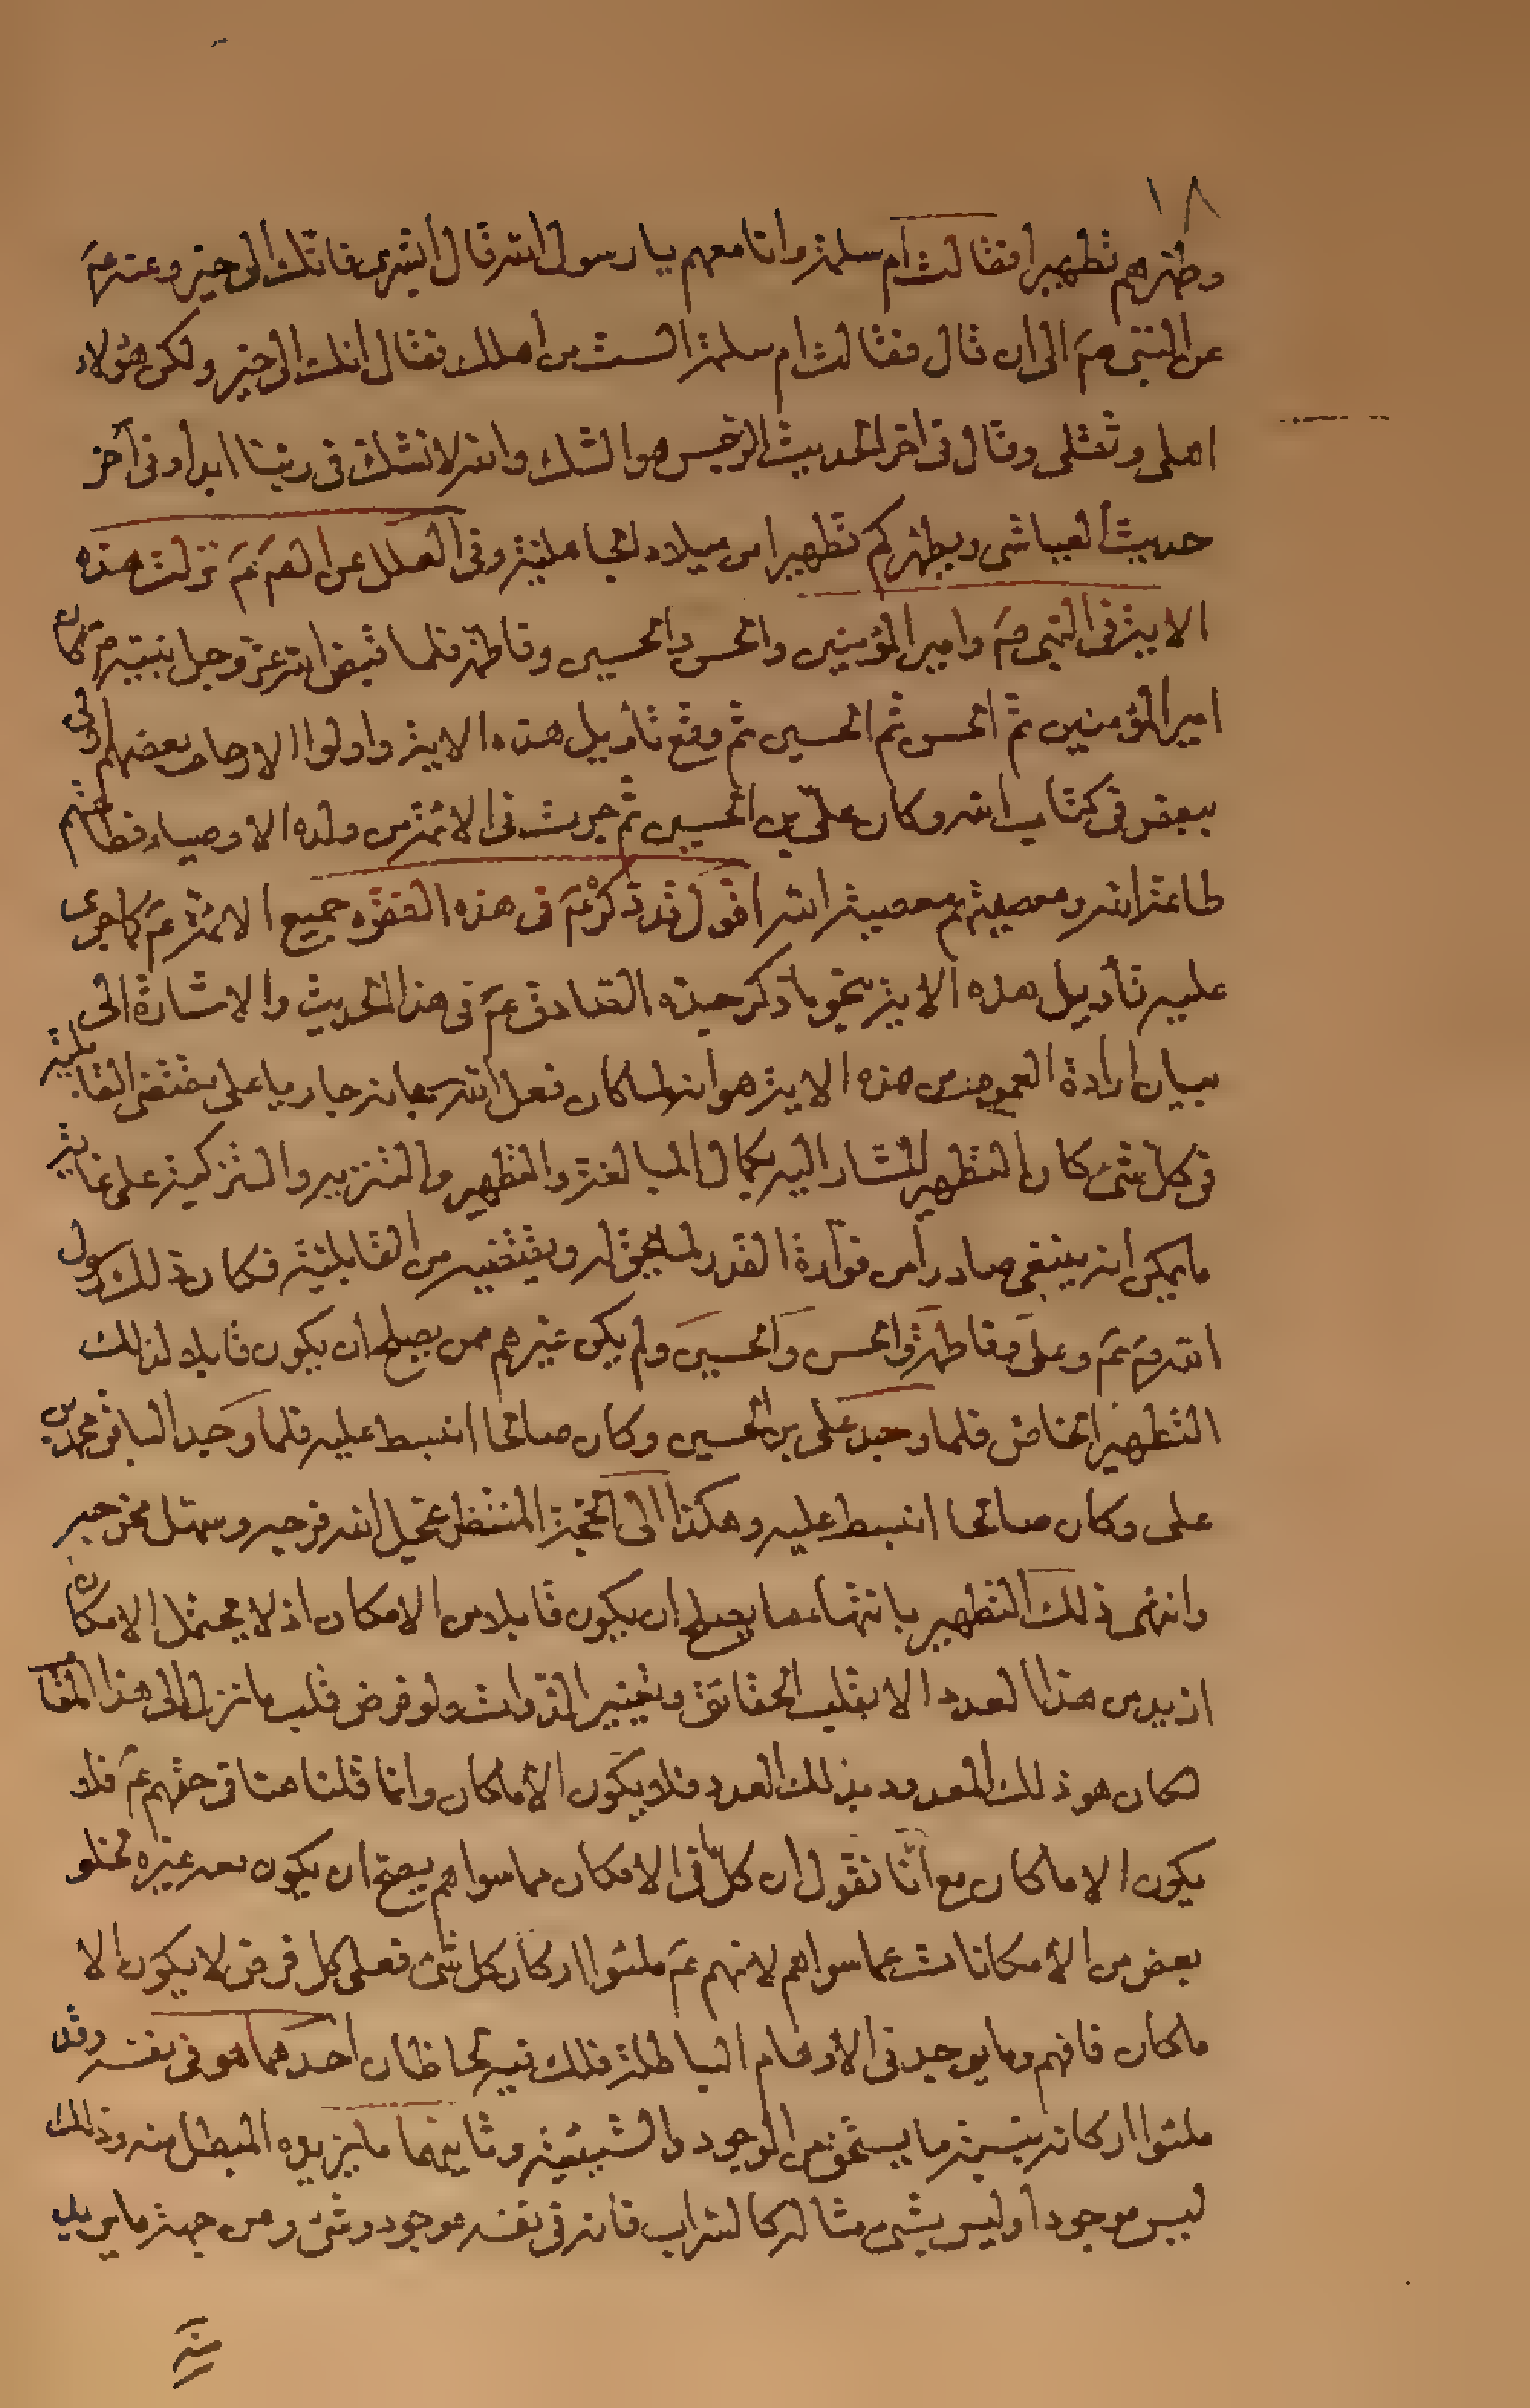 ١٨
وطهرهم تطهيرا فقالت ام سلمة وانا معهم يا رسول الله قال ابشرى فانك الى خير وعنه عم
عن النبى صم الى ان قال فقالت ام سلمة الست من اهلك فقال انك الى خير ولكن هؤلاء
اهلى وثقلى وقال فى اخر الحديث الرجس هو الشك والله لا نشك فى ربنا ابدا وفى آخر
حديث العياشى ويطهركم تطهيرا من ميلاد الجاهلية وفى العلل عن الصم عم نزلت هذه
الاية فى النبى صم وامير المؤمنين والحسن والحسين وفاطمة فلما قبض الله عز وجل نبيه صم كان
امير المؤمنين ثم الحسن ثم الحسين ثم وقع تأويل هذه الاية واولوا الارحام بعضهم اولى
ببعض فى كتاب الله وكان على بن الحسين ثم جرت فى الائمة من ولده الاوصياء فطاعتهم
طاعة الله ومعصيتهم معصية الله اقول قد ذكر عم فى هذه الفقره جميع الائمة عم كما جرى
عليه تأويل هذه الاية نحو ما ذكر جده الصادق عم فى هذا الحديث والاشارة الى
بيان ارادة العموم من هذه الاية هو انه لما كان فعل الله سبحانه جاريا على مقتضى القابلية
فى كل شئ كان التطهير المشار اليه بكمال المبالغة والتطهير والتنزيه والتزكية على غاية
ما يمكن انه ينبغى صادرا من فوارة القدر لما يحق له ويقتضيه من القابلية فكان ذلك رسول
الله صم عم وعلى وفاطمة والحسن والحسين ولم يكن غيرهم ممن يصلح ان يكون قابلا لذلك
التطهير الخاص فلما وجد على بن الحسين وكان صالحا انبسط عليه فلما وجد الباقر محمد بن
على وكان صالحا انبسط عليه وهكذا الى الحجة المنتظر عجل الله فرجه وسهل مخرجه
وانتهى ذلك التطهير بانتهاء ما يصلح ان يكون قابلا من الامكان اذ لا يحتمل الامكان
ازيد من هذا العدد الا بقلب الحقائق وتغيير الذوات ولو فرض قلب ما نزل الى هذا المقام
لكان هو ذلك المعدود بذلك العدد فلا يكون الا ما كان وانما قلنا هنا فى حقهم عم فلا
يكون الا ما كان مع انا نقول ان كل ما فى الامكان مما سواهم يصح ان يكون بعد غيره لخلو
بعض من الامكانات عما سواهم لانهم عم ملئوا اركان كل شئ فعلى كل فرض لا يكون الا
ما كان فافهم وما يوجد فى الاوهام الباطلة فلك فيه لحاظان احدهما هو فى نفسه وقد
ملئوا اركانه بنسبة ما يستحق من الوجود والشيئية وثانيهما ما يزيده المبطل منه وذلك
ليس موجودا وليس بشئ مثاله كالسراب فانه فى نفسه موجود وشئ ومن جهة ما يريد